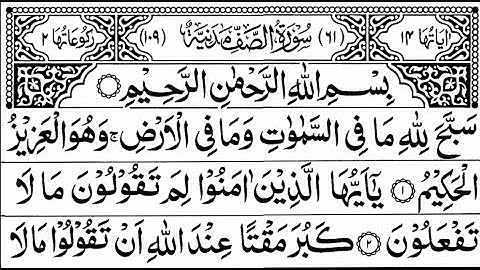 اٰيَاتُهَا ١٤ (٦١) سُوْرَةُ الصَّفِّ مَدَنِيَّةٌ (١٠٩) رُكُوْعَاتُهَا ٢
بِسْمِ اللّٰهِ الرَّحْمٰنِ الرَّحِيْمِ
سَبَّحَ لِلّٰهِ مَا فِى السَّمٰوٰتِ وَمَا فِى الْاَرْضِ ۚ وَهُوَ الْعَزِيْزُ
الْحَكِيْمُ ﴿١﴾ يٰۤاَيُّهَا الَّذِيْنَ اٰمَنُوْا لِمَ تَقُوْلُوْنَ مَا لَا
تَفْعَلُوْنَ ﴿٢﴾ كَبُرَ مَقْتًا عِنْدَ اللّٰهِ اَنْ تَقُوْلُوْا مَا لَا